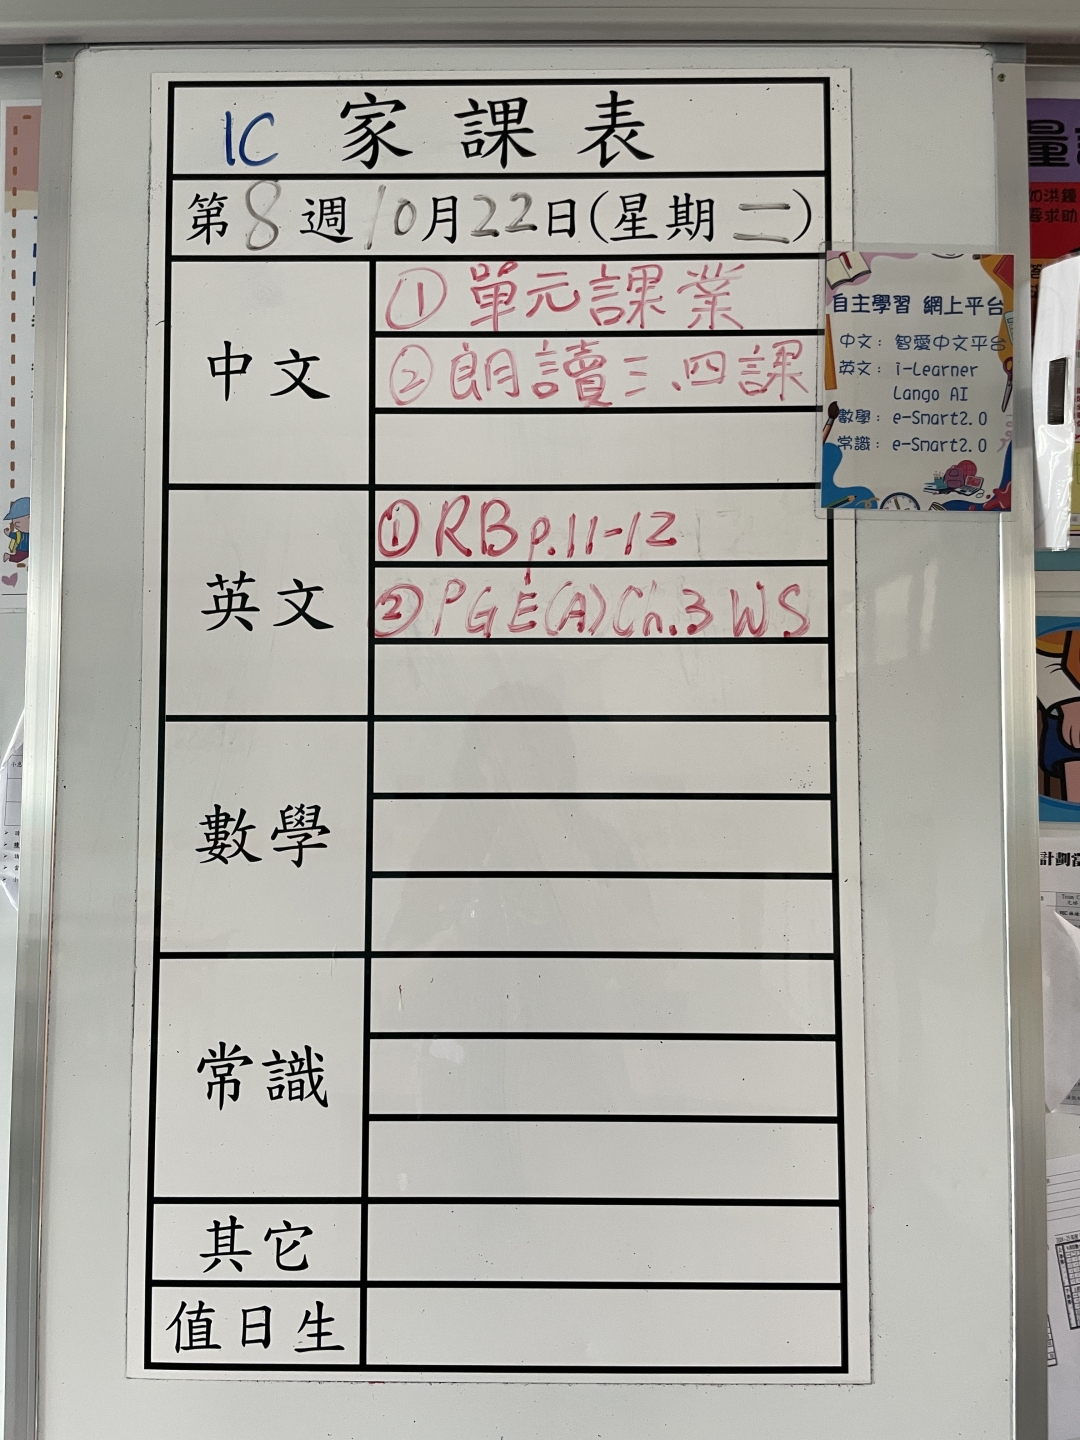 1C 家課表
第8週10月22日(星期二)
中文
①單元課業
②朗讀三、四課
英文
①RB p.11-12
②PGE(A)Ch.3 WS
數學
常識
其它
值日生
自主學習 網上平台
中文：智愛中文平台
英文：i-Learner
Lango AI
數學：e-Smart2.0
常識：e-Smart2.0
如洪鐘
尋求助
計劃